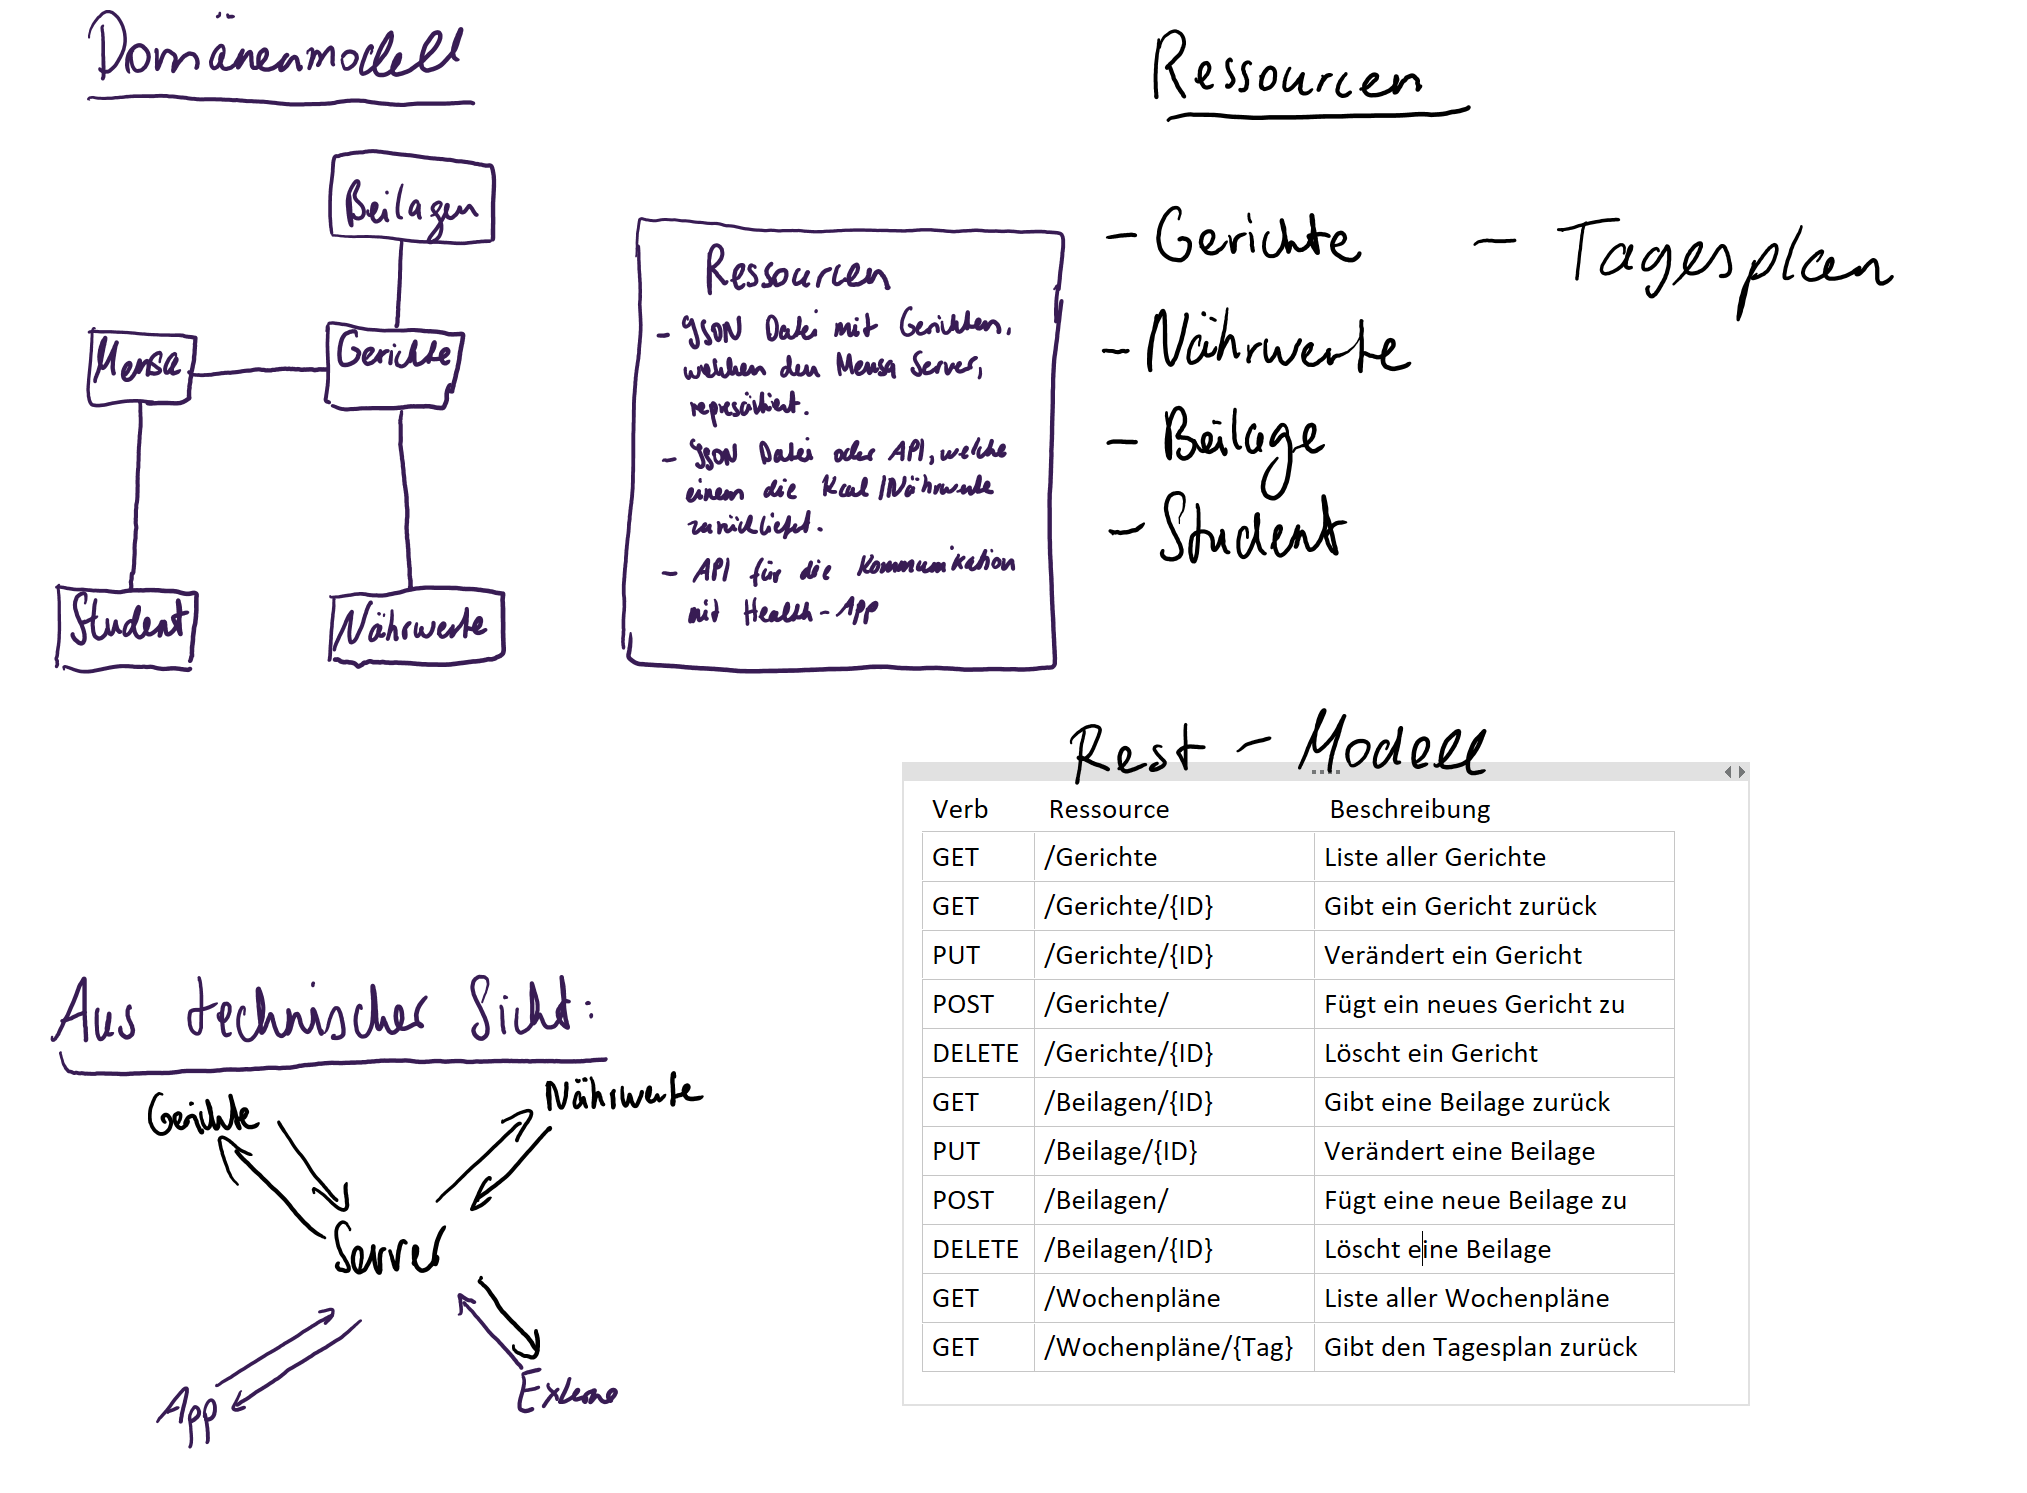 Domänenmodell
Beilagen
Mensa
Gerichte
Student
Nährwerte
Ressourcen
- JSON Datei mit Gerichten,
welchen den Mensa Server,
- JSON Datei oder API, welche
einem die Kcal/Nährwerte
zurückliefert.
- API für die Kommunikation
mit Health-App
Ressourcen
- Gerichte
- Tagesplan
- Nährwerte
- Beilage
- Student
Rest - Modell
Verb Ressource Beschreibung
GET /Gerichte Liste aller Gerichte
GET /Gerichte/{ID} Gibt ein Gericht zurück
PUT /Gerichte/{ID} Verändert ein Gericht
POST /Gerichte/ Fügt ein neues Gericht zu
DELETE /Gerichte/{ID} Löscht ein Gericht
GET /Beilagen/{ID} Gibt eine Beilage zurück
PUT /Beilage/{ID} Verändert eine Beilage
POST /Beilagen/ Fügt eine neue Beilage zu
DELETE /Beilagen/{ID} Löscht eine Beilage
GET /Wochenpläne Liste aller Wochenpläne
GET /Wochenpläne/{Tag} Gibt den Tagesplan zurück
Aus technischer Sicht:
Gerichte
Nährwerte
Server
App
Externe